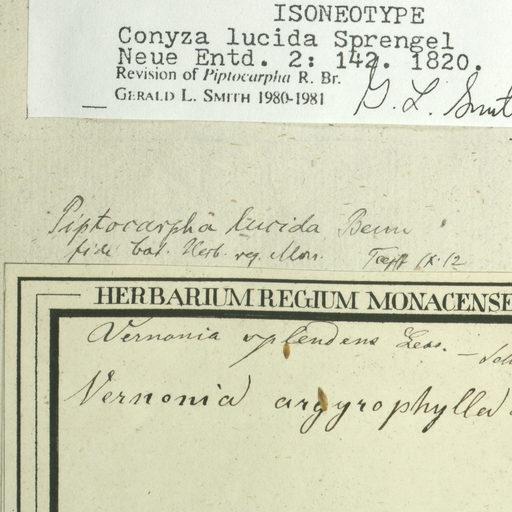 ISONEOTYPE
Conyza lucida Sprengel
Neue Entd. 2: 142. 1820.
Revision of Piptocarpha R. Br.
GERALD L. SMITH 1980-1981
G. L. Smit
Piptocarpha lucida Benn
fide Cat. Herb. reg. Mon. IX.12
HERBARIUM REGIUM MONACENSE
Vernonia splendens Less. — Sch
Vernonia argyrophylla